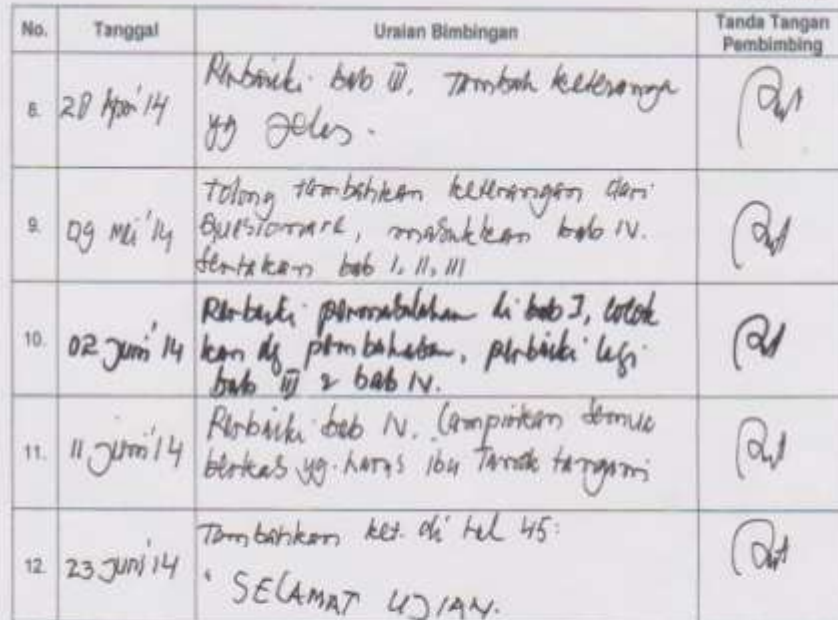 No. Tanggal Uraian Bimbingan Tanda Tangan
Pembimbing
8. 28 Apr '14 Perbaiki bab III. Tambah keterangan
yg jelas.
9. 09 Mei '14 Tolong tambahkan keterangan dari
Questionare, masukkan bab IV.
Sertakan bab I, II, III
10. 02 Juni '14 Perbaiki permasalahan di bab I, cocok
kan dg pembahasan, perbaiki lagi
bab III & bab IV.
11. 11 Juni '14 Perbaiki bab IV. Lampirkan semua
berkas yg harus ibu Tanda tangani
12. 23 Juni '14 Tambahkan ket. di hal 45:
SELAMAT UJIAN.